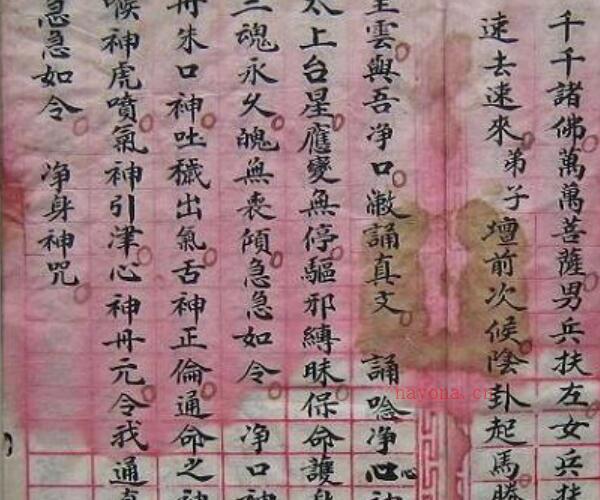 千千諸佛萬萬菩薩男兵扶左女兵扶
速去速來弟子壇前次候陰卦起馬勝
雲與吾净口澉誦真文 誦唸净心心神
太上台星應變無停驅邪縛昧保命護身
三魂永久魄無丧傾急急如令 净口神
丹朱口神吐穢出氣舌神正倫通命之神
喉神虎噴氣神引津心神丹元令我通真
急急如令 净身神咒
nayona.cn